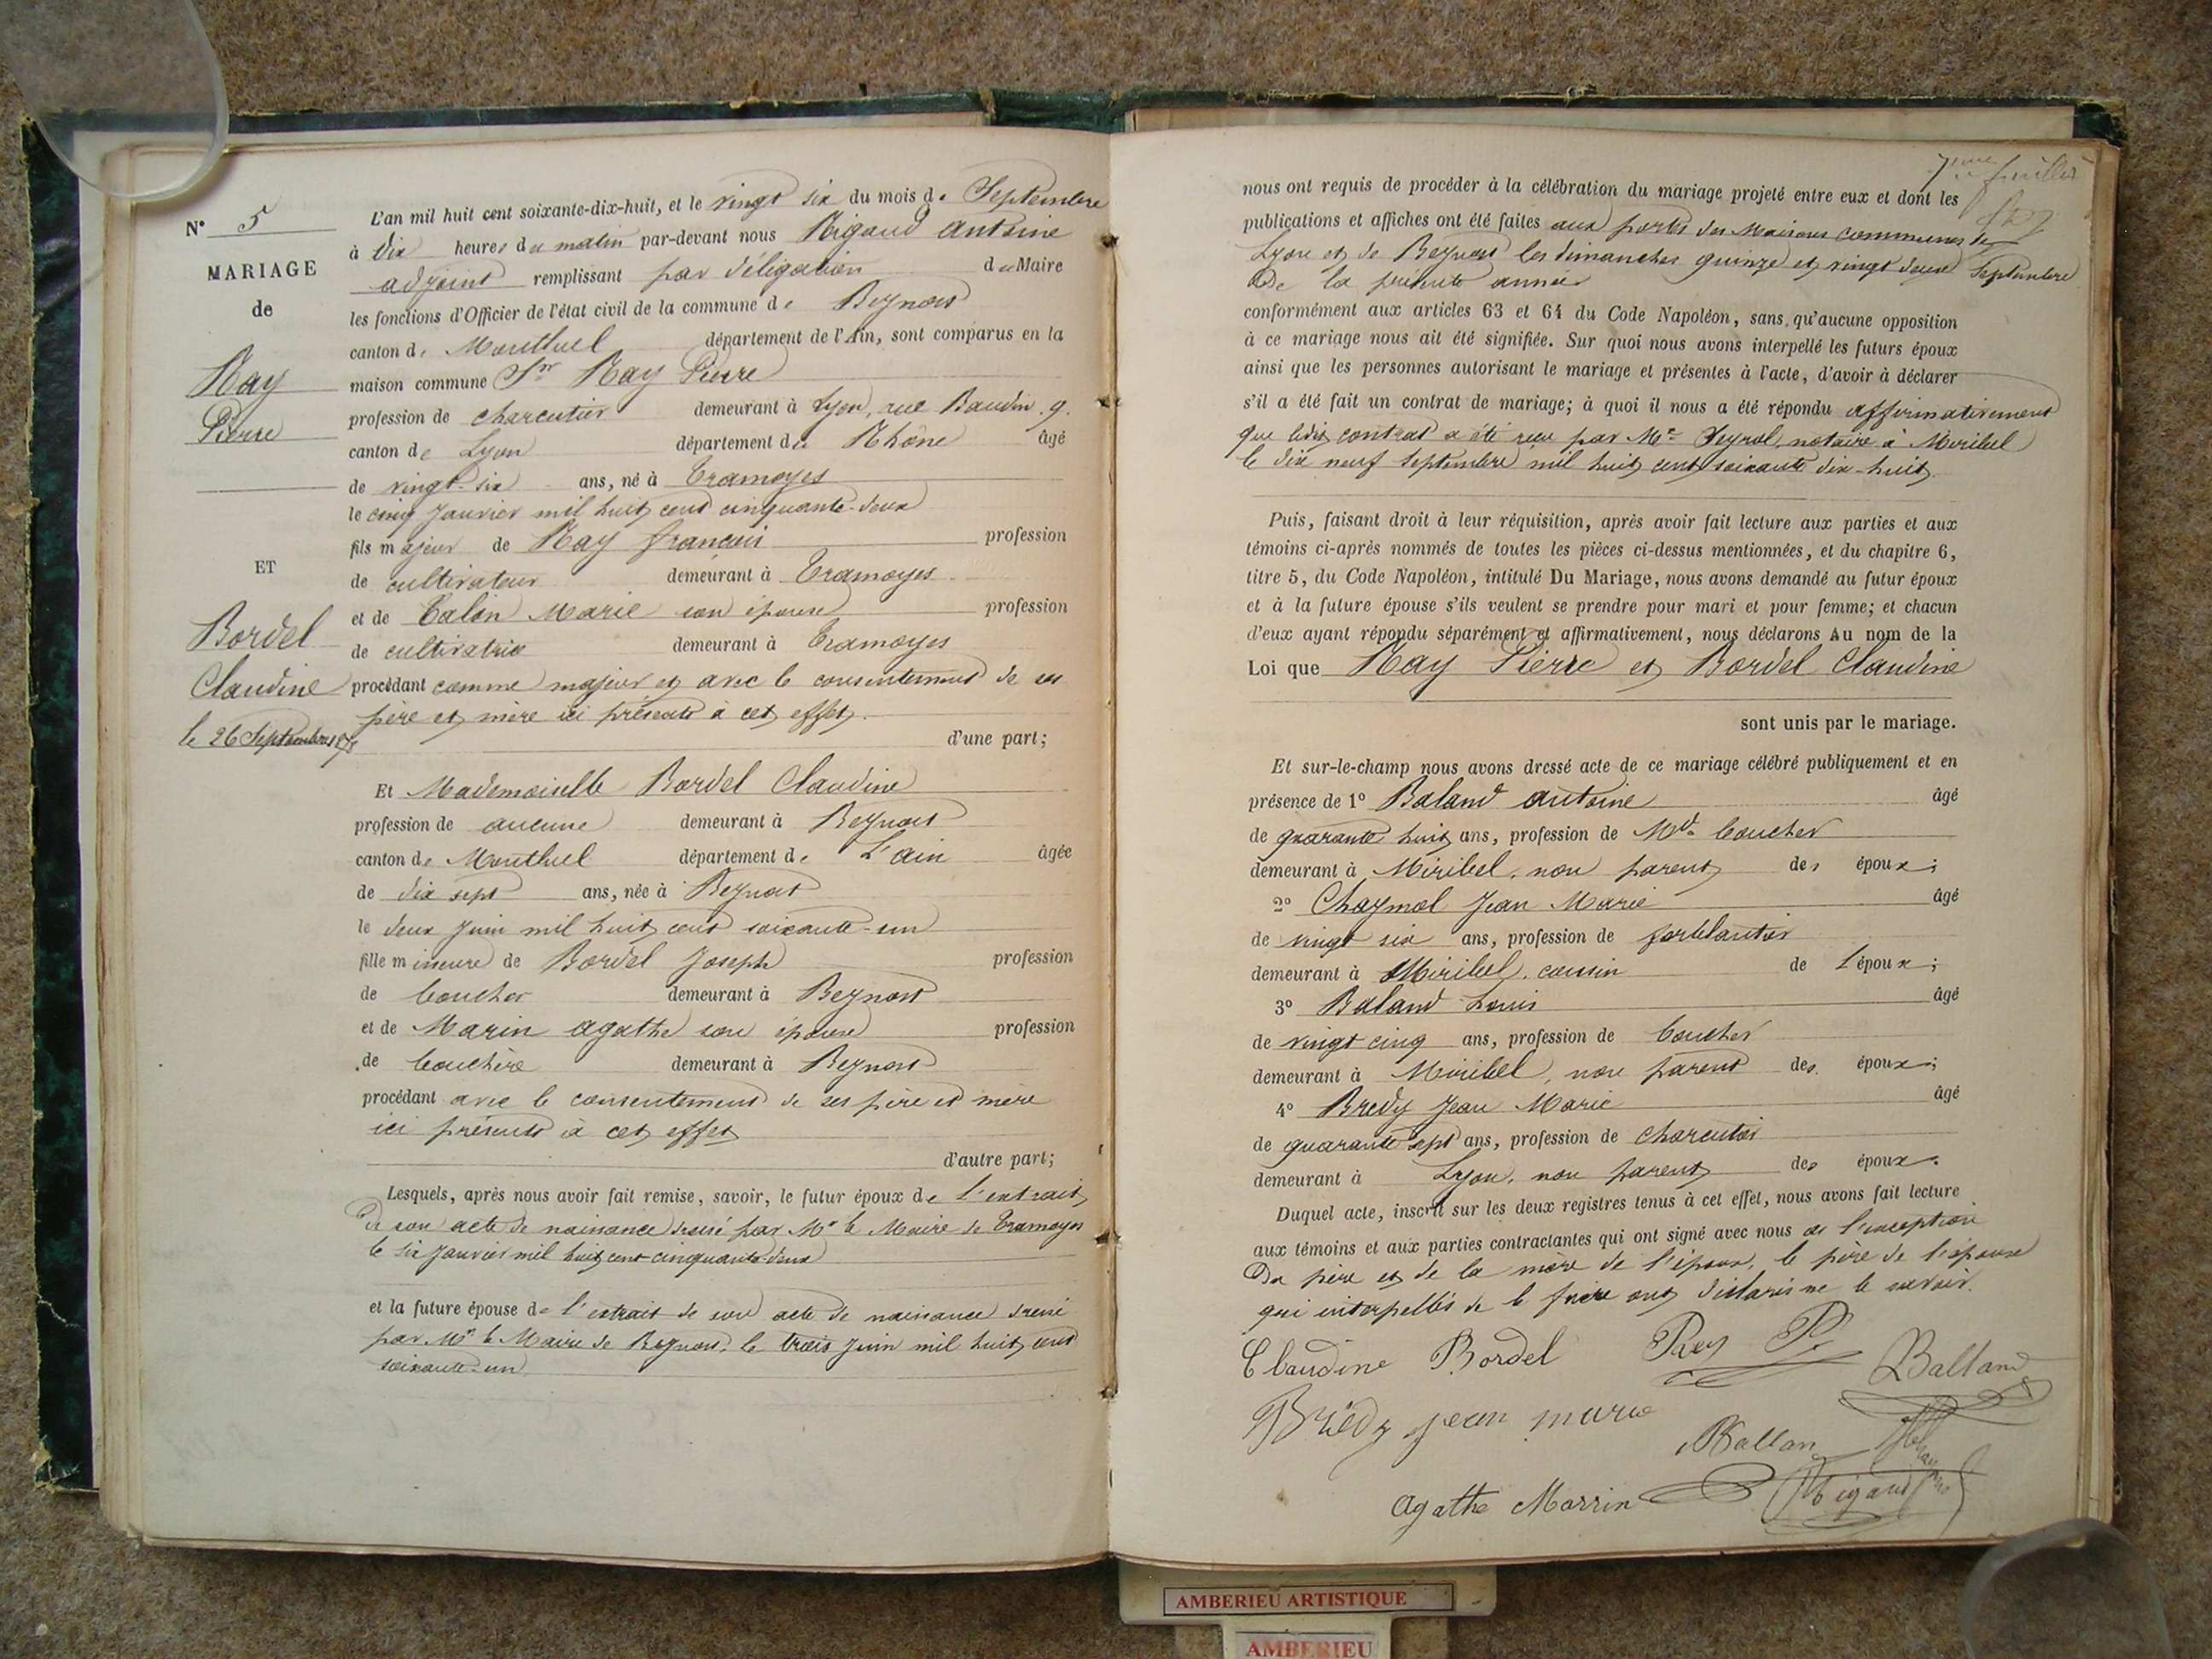 N° 5
MARIAGE
de
Ray
Pierre
ET
Bordel
Claudine
le 26 Septembre 1878
L'an mil huit cent soixante-dix-huit, et le vingt six du mois de Septembre
à dix heures du matin par-devant nous Rigaud Antoine
adjoint remplissant par déligation du Maire
les fonctions d'Officier de l'état civil de la commune de Beynost
canton de Montluel département de l'Ain, sont comparus en la
maison commune Sr Ray Pierre
profession de charcutier demeurant à Lyon, rue Baudin. 9.
canton de Lyon département du Rhône âgé
de vingt-six ans, né à Tramoyes
le cinq Janvier mil huit cent cinquante-deux
fils majeur de Ray françois profession
de cultivateur demeurant à Tramoyes
et de Talon Marie son épouse profession
de cultivatrice demeurant à Tramoyes
procédant comme majeur et avec le consentement de ses
père et mère ici présents à cet effet.
d'une part;
Et Mademoiselle Bordel Claudine
profession de aucune demeurant à Beynost
canton de Montluel département de L'ain âgée
de dix sept ans, née à Beynost
le deux Juin mil huit cent soixante-un
fille mineure de Bordel Joseph profession
de boucher demeurant à Beynost
et de Marin agathe son épouse profession
de bouchère demeurant à Beynost
procédant avec le consentement de ses père et mère
ici présents à cet effet
d'autre part;
Lesquels, après nous avoir fait remise, savoir, le futur époux de l'extrait
de son acte de naissance dressé par Mr le Maire de Tramoyes
le six Janvier mil huit cent cinquante-deux
et la future épouse de l'extrait de son acte de naissance dressé
par Mr le Maire de Beynost, le trois Juin mil huit cent
soixante-un
7eme feuillet
nous ont requis de procéder à la célébration du mariage projeté entre eux et dont les
publications et affiches ont été faites aux portes des Maisons communes de
Lyon et de Beynost les dimanches quinze et vingt deux Septembre
De la présente année
conformément aux articles 63 et 64 du Code Napoléon, sans qu'aucune opposition
à ce mariage nous ait été signifiée. Sur quoi nous avons interpellé les futurs époux
ainsi que les personnes autorisant le mariage et présentes à l'acte, d'avoir à déclarer
s'il a été fait un contrat de mariage; à quoi il nous a été répondu affirmativement
que ledit contrat a été reçu par Mr notaire à Miribel
le dix neuf Septembre mil huit cent soixante dix-huit.
Puis, faisant droit à leur réquisition, après avoir fait lecture aux parties et aux
témoins ci-après nommés de toutes les pièces ci-dessus mentionnées, et du chapitre 6,
titre 5, du Code Napoléon, intitulé Du Mariage, nous avons demandé au futur époux
et à la future épouse s'ils veulent se prendre pour mari et pour femme; et chacun
d'eux ayant répondu séparément et affirmativement, nous déclarons Au nom de la
Loi que Ray Pierre et Bordel Claudine
sont unis par le mariage.
Et sur-le-champ nous avons dressé acte de ce mariage célébré publiquement et en
présence de 1° Baland antoine âgé
de quarante huit ans, profession de Md boucher
demeurant à Miribel, non parent des époux;
2° Chaymol Jean Marie âgé
de vingt six ans, profession de ferblantier
demeurant à Miribel, cousin de l'époux;
3° Baland Louis âgé
de vingt cinq ans, profession de boucher
demeurant à Miribel, non parent des époux;
4° Bredy Jean Marie âgé
de quarante sept ans, profession de charcutier
demeurant à Lyon, non parent des époux.
Duquel acte, inscrit sur les deux registres tenus à cet effet, nous avons fait lecture
aux témoins et aux parties contractantes qui ont signé avec nous à l'exception
Du père et de la mère de l'époux, le père de l'épouse
qui interpellés de le faire ont déclaré ne le savoir.
Claudine Bordel Rey P. Balland
Briedy jean marie
Ballan
Agathe Marrin Rigaud
AMBERIEU ARTISTIQUE
AMBERIEU